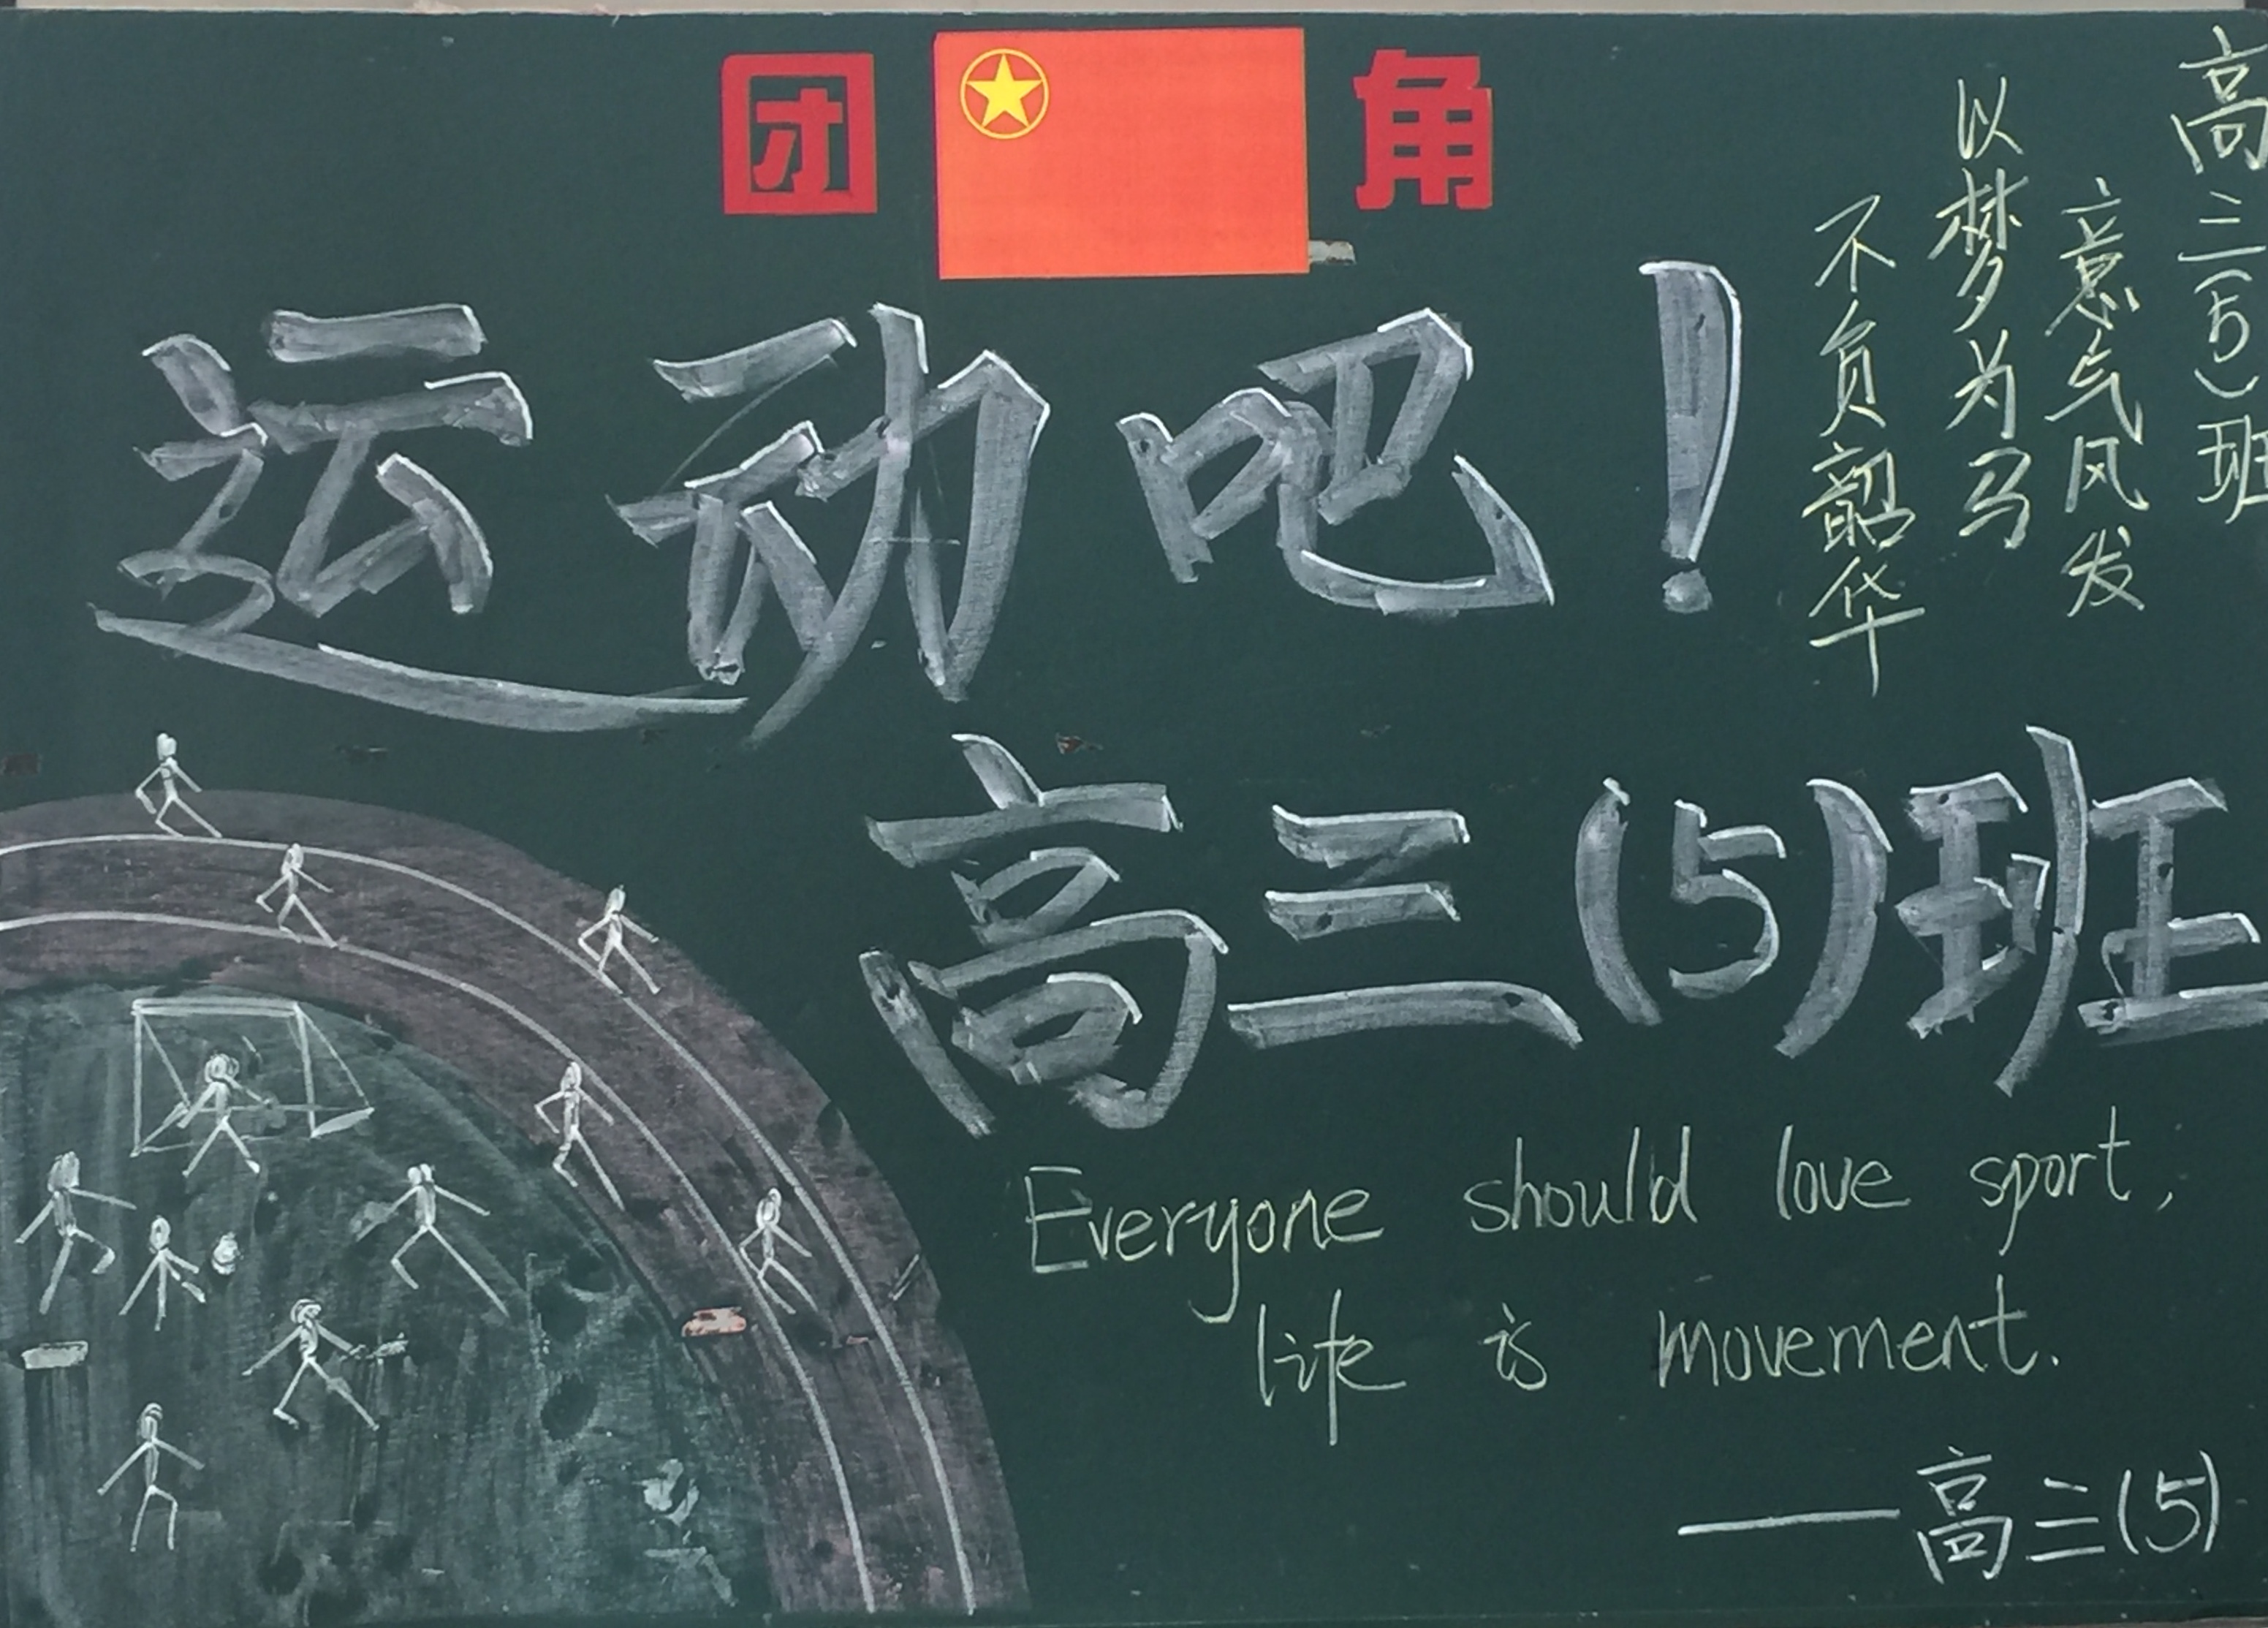 团 角
高三(5)班
意气风发
以梦为马
不负韶华
运动吧！
高三(5)班
Everyone should love sport,
life is movement.
——高三(5)